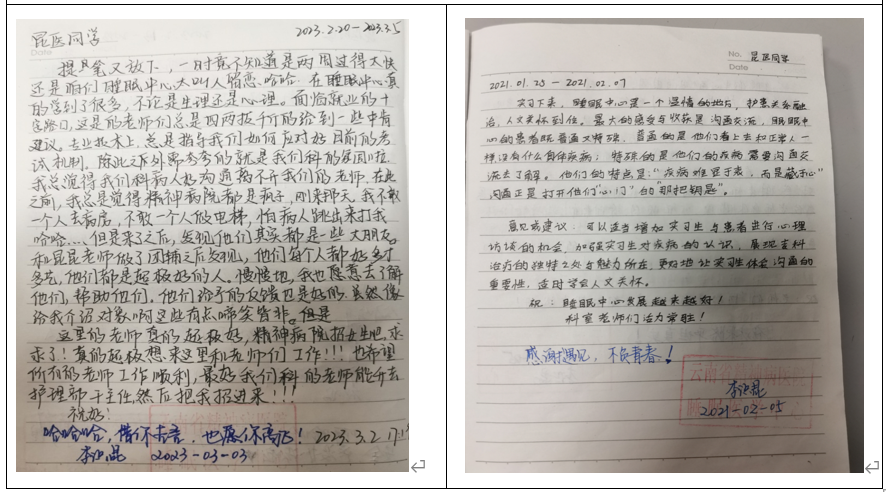 昆医同学
2023.2.20-2023.3.5
提起笔又放下,一时竟不知道是两周过得太快
还是咱们睡眠中心太叫人留恋,哈哈.在睡眠中心真
的学到了很多,不论是生理还是心理。面临就业的十
字路口,这里的老师们总是四两拨千斤的给到一些中肯
建议。去业技术上,总是指导我们如何应对好目前的考
试机制.除此之外
我总觉得我们科病人好沟通离不开我们的老师,在此
之前,我总是觉得精神病院都是疯子,刚来那天,我不敢
一个人去病房,不敢一个人做电梯,怕病人跳出来打我
哈哈....但是来了之后,发现他们其实都是一些大朋友。
和昆昆老师做了团辅之后发现,他们每个人都好多才
多艺,他们都是超极好的人。慢慢地,我也愿意去了解
他们,帮助他们。他们给予的反馈也是好的.虽然像
给我介绍对象啊这些有点啼笑皆非。但是
这里的老师真的超极好,精神病院招女生吧,求
求了!真的超极想来这里和老师们工作!!!也希望
所有的老师工作顺利,最好我们科的老师能升去
护理部干主任然后把我招进来!!!
祝好!
哈哈哈,借你吉言,也愿你高飞!
2023.3.2
2023-03-03
No. 昆医同学
Date
2021.01.25-2021.02.07
实习下来,睡眠中心是一个温情的地方,护患关系融
洽,人文关怀到位。最大的感受与收获是沟通交流,睡眠中
心的患者既普通又特殊,普通的是他们看上去和正常人一
样没有什么身体疾病;特殊的是他们的疾病需要沟通交
流去了解。他们的特点是:"疾病难言于表,而是藏于心"
沟通正是打开他们"心门"的"那把钥匙"。
意见或建议:可以适当增加实习生与患者进行心理
访谈的机会,加强实习生对疾病的认识,展现本科
治疗的独特之处与魅力所在,更好地让实习生体会沟通的
重要性,适时学会人文关怀。
祝:睡眠中心发展越来越好!
科室老师们活力常驻!
感谢遇见,不负青春!
2021-02-05